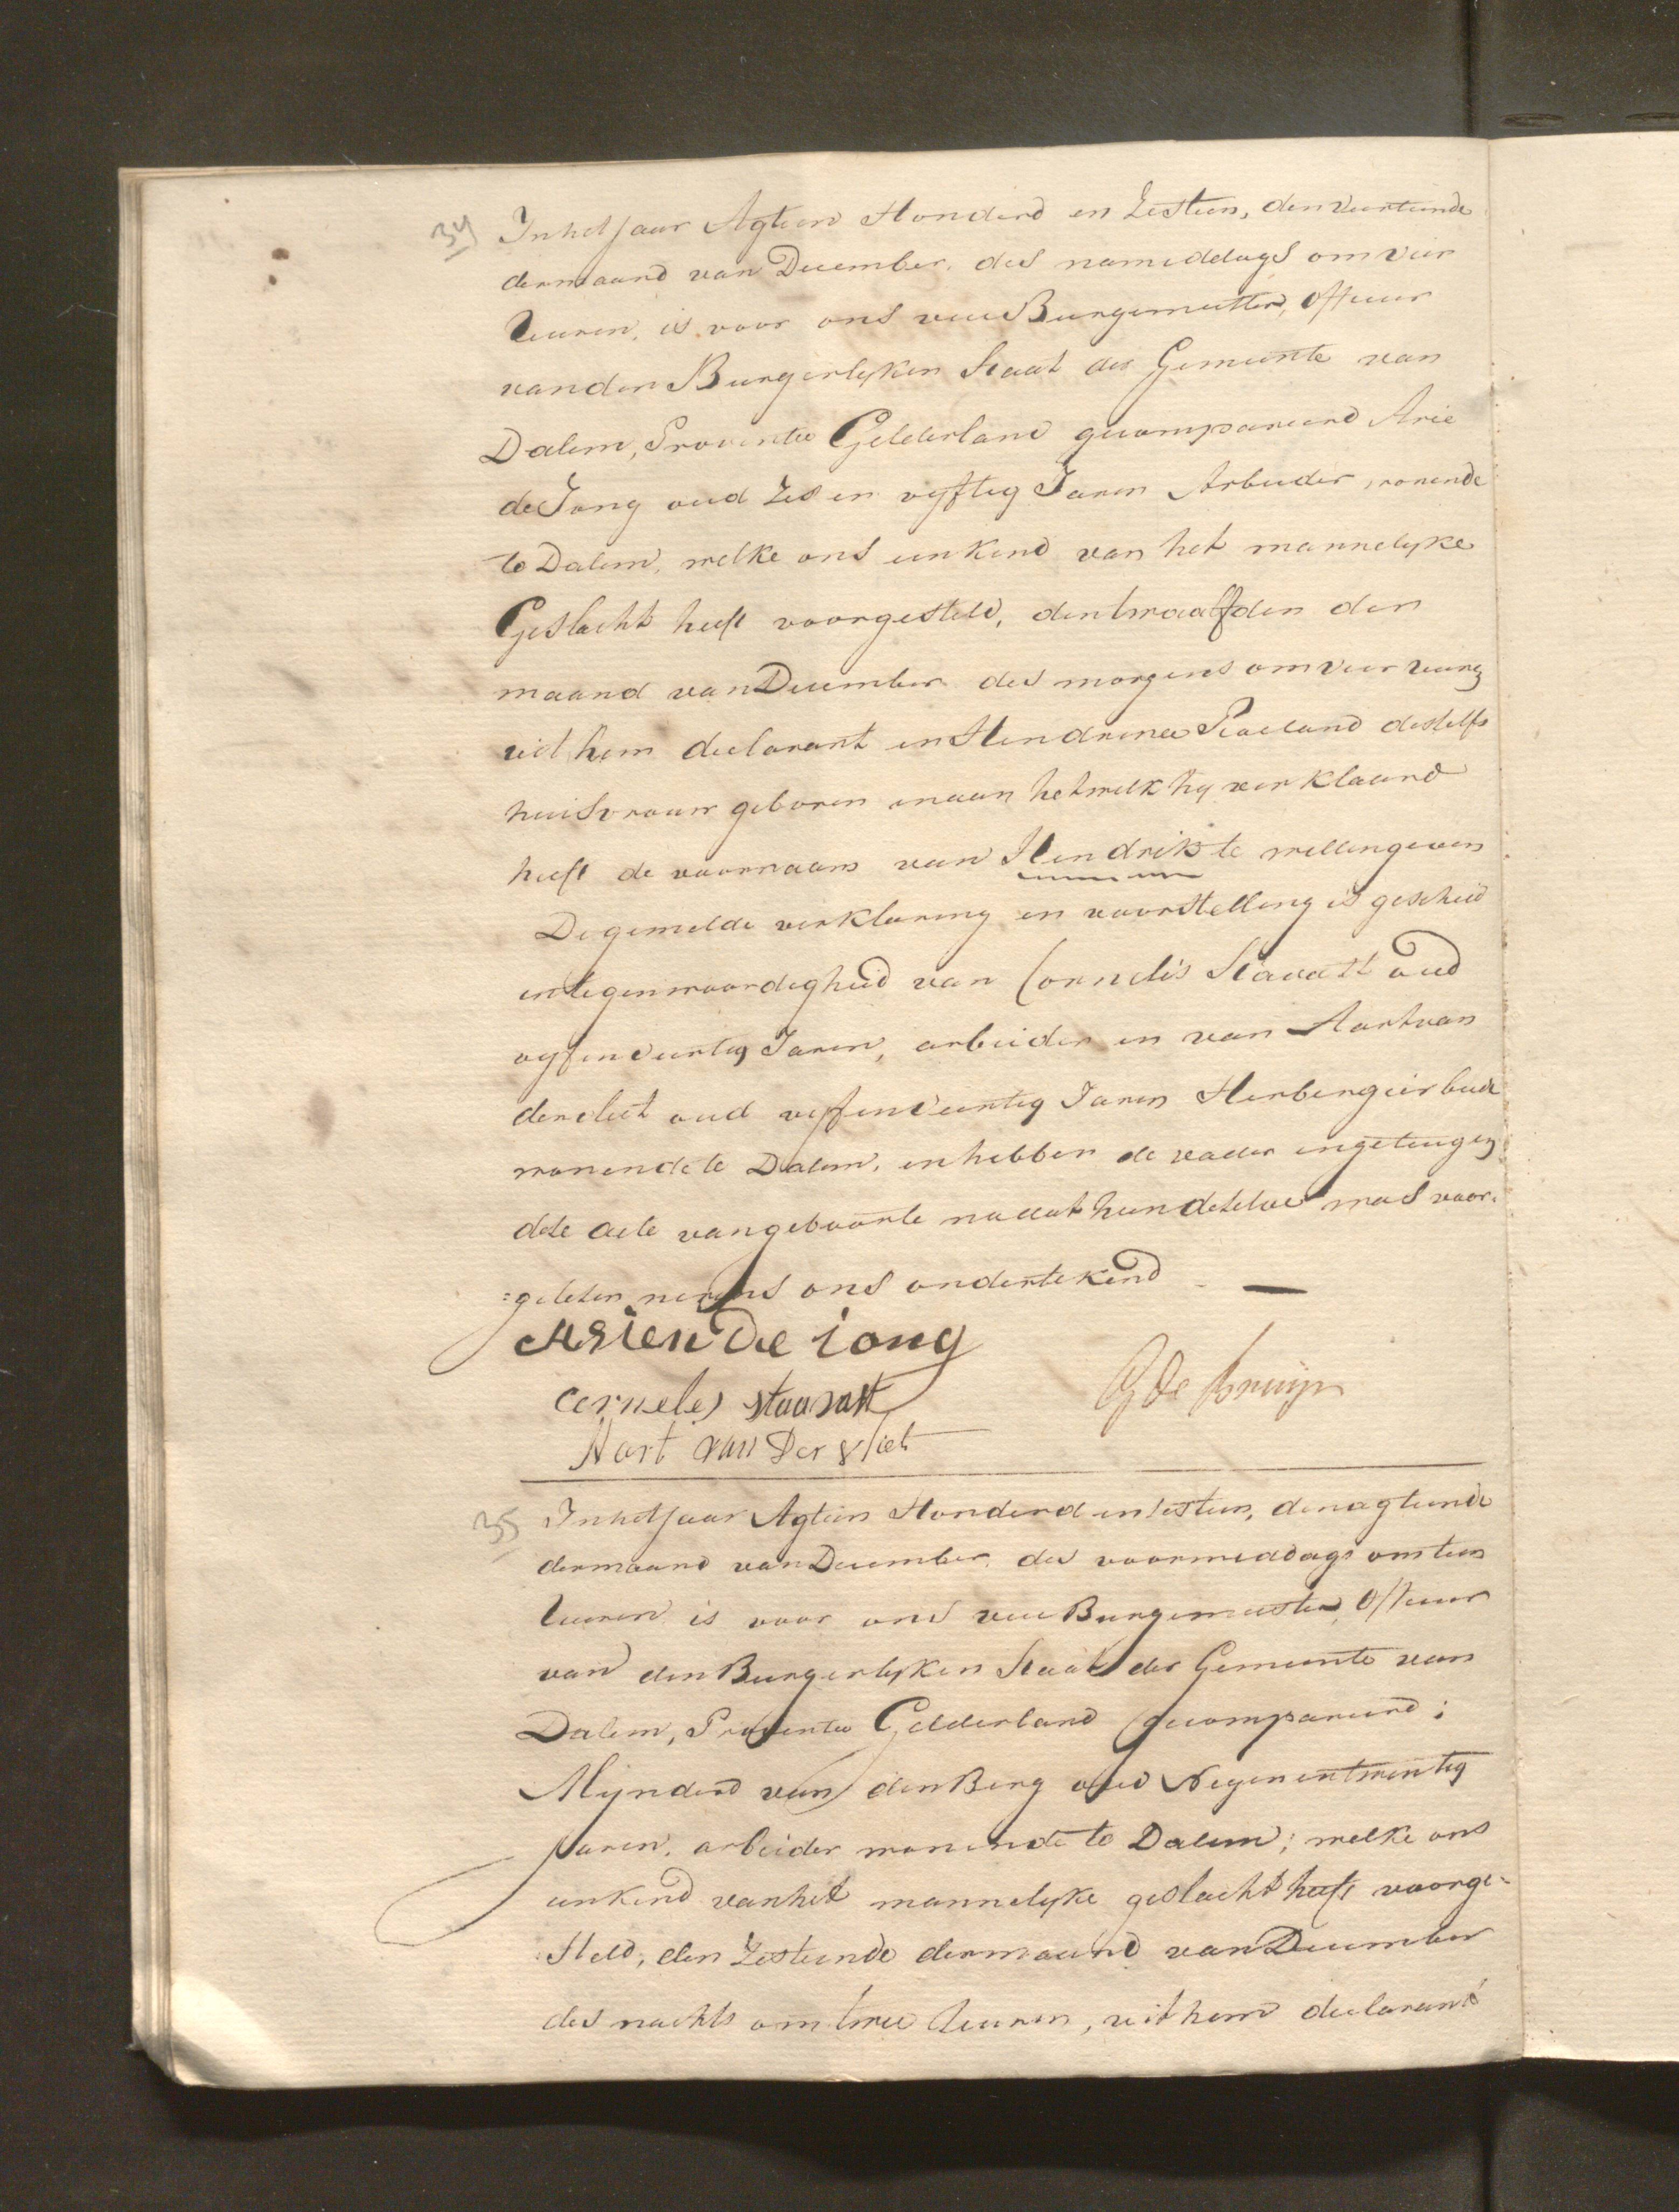 34 In het Jaar Agtien Honderd en Zestien, den veertiende
dermaand van December, des namiddags om vier
Uuren, is voor ons vice Burgemeester, Officier
van den Burgerlyken Staat der Gemeente van
Dalem, Provintie Gelderland gecompareerd Arie
de Jong oud Zes en vyftig Jaren Arbeider, wonende
te Dalem, welke ons een Kind van het mannelyke
Geslacht heeft voorgesteld, den twaalfden der
maand van December des morgens om vier uuren
uit hem declarant en Hendrina desselfs
huisvrouw geboren en aan hetwelk hy verklaard
heeft de voornaam van Hendrik te willen geven
De gemelde verklaring en voorstelling is geschied
in tegenwoordigheid van Cornelis Stavast oud
vyf en veertig Jaren, arbeider en van Aart van
der vliet oud vyf en veertig Jaren Herbergier beide
wonende te Dalem, en hebben de vader en getuigen
deze acte van geboorte nadat hun dezelve was voor-
=gelezen nevens ons ondertekend —
Arien De iong
Cerneles staavast
G de Bruijn
Aart van Der vliet
35 In het Jaar Agtien Honderd en sestien, den agtiende
dermaand van December, des voormiddags om tien
Uuren is voor ons vice Burgemeester, Officier
van den Burgerlyken Staat der Gemeente van
Dalem, Provintie Gelderland gecompareerd;
Mynderd van den Berg oud Negen en twintig
Jaren, arbeider wonende te Dalem; welke ons
een kind van het mannelyke geslacht heeft voorge-
steld, den Zestiende dermaand van December
des nachts om twee Uuren, uit hem declarant